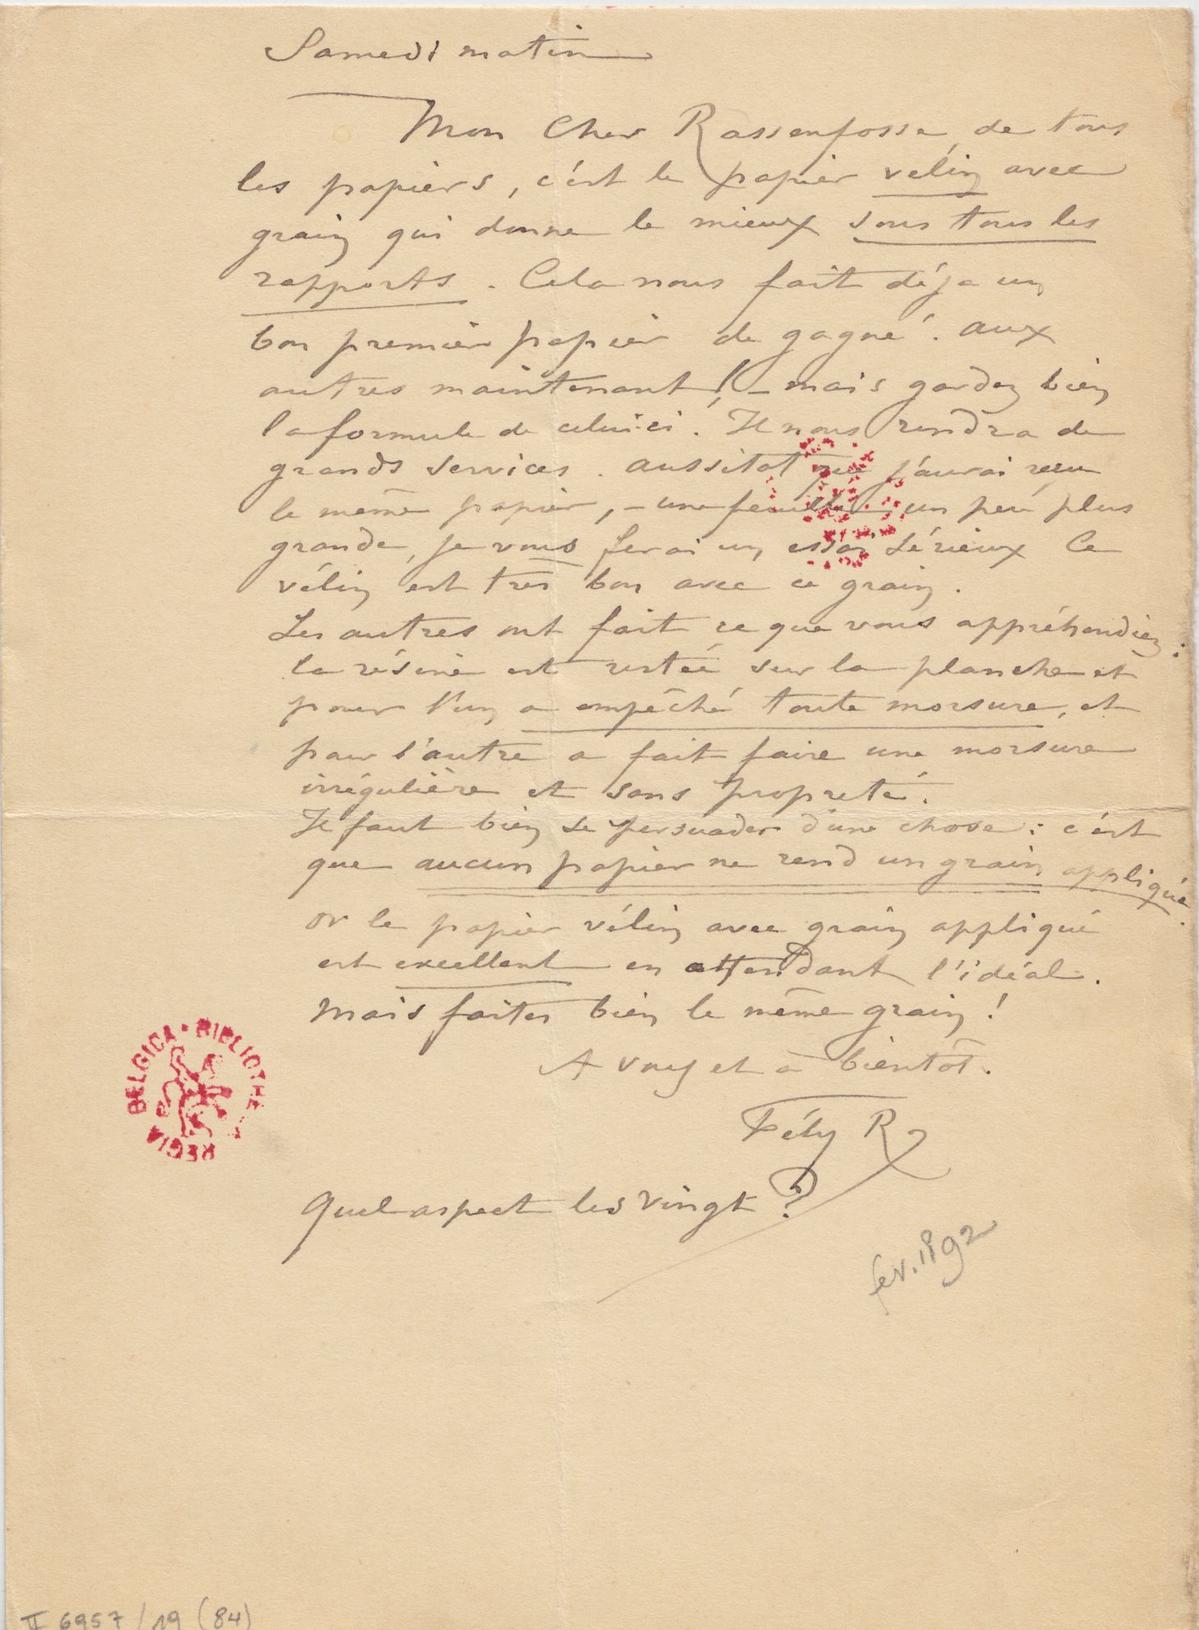 Samedi matin
Mon Cher Rassenfosse, de tous
les papiers, c'est le papier vélin avec
grain qui donne le mieux sous tous les
rapports. Cela nous fait déja un
bon premier papier de gagné. aux
autres maintenant! – mais gardez bien
la formule de celui ci. Il nous rendra de
grands services. aussitot que j'aurai reçu
le même papier, – une feuille un peu plus
grande, je vous ferai un essai sérieux Ce
vélin est tres bon avec ce grain.
Les autres ont fait ce que vous appréhendiez:
la résine est restée sur la planche et
pour l'un a empêché toute morsure, et
pour l'autre a fait faire une morsure
irrégulière et sans propreté.
Il faut bien se persuader d'une chose: c'est
que aucun papier ne rend un grain appliqué.
or le papier vélin avec grain appliqué
est excellent en attendant l'idéal.
Mais faites bien le même grain!
A vous et à bientôt.
Fély R
Quel aspect les vingt?
fev. 1892
BELGICA · BIBLIOTHECA REGIA
II 6957/19 (84)